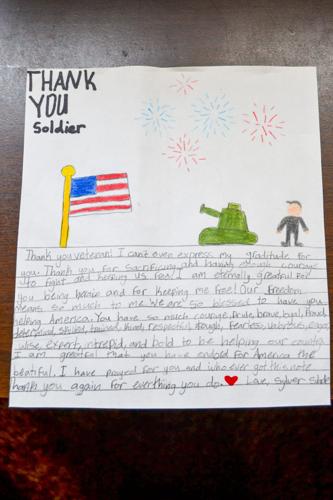 THANK
YOU
Soldier
Thank you veteran! I can't even express my gratitude for
you. Thank you for sacrificing and having enough courage
to fight and keeping us free. I am eternally greatful for
you being heroic and for keeping me free! Our freedom
means so much to me. We are so blessed to have you
helping America. You have so much courage, pride, brave, loyal,
determined, skilled, trained, kind, respectful, tough, fearless,
wise, expert, intrepid, and bold to be helping our country
I am greatful that you have endord for America the
beatiful. I have prayed for you and who ever got this note
thank you again for everthing you do. Love, Sylver